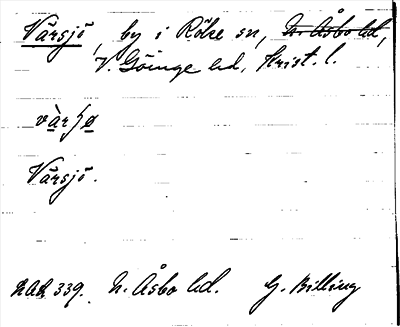 Värsjö, by i Röke sn, N. Åsbo hd,
V. Göinge hd, Krist. l.
vàrʃø
Värsjö.
339. N. Åsbo hd. G. Billing